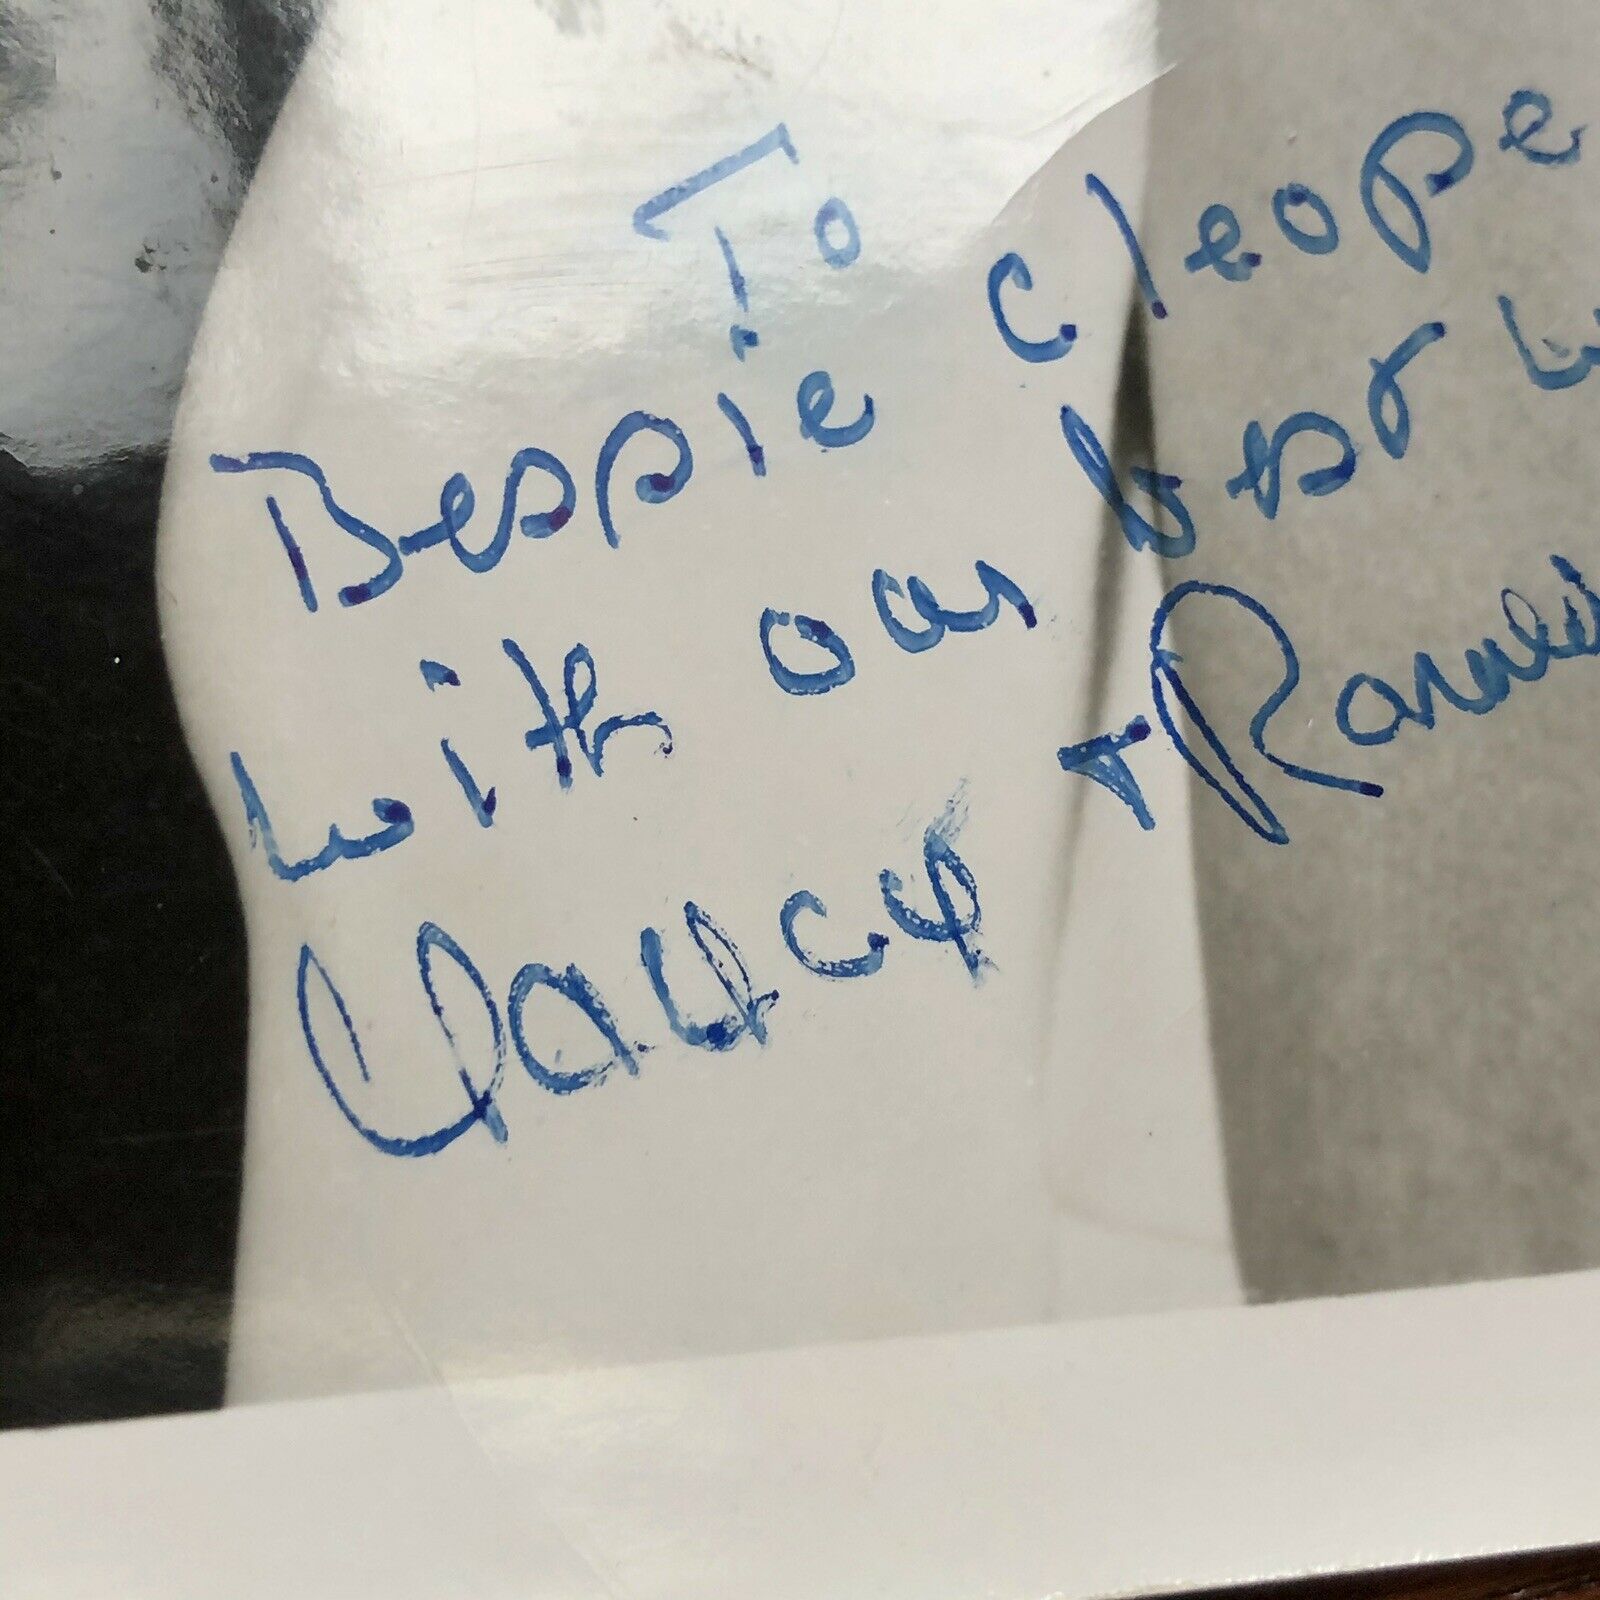 To
Bessie Cleope
with our best w
Nancy + Ronald